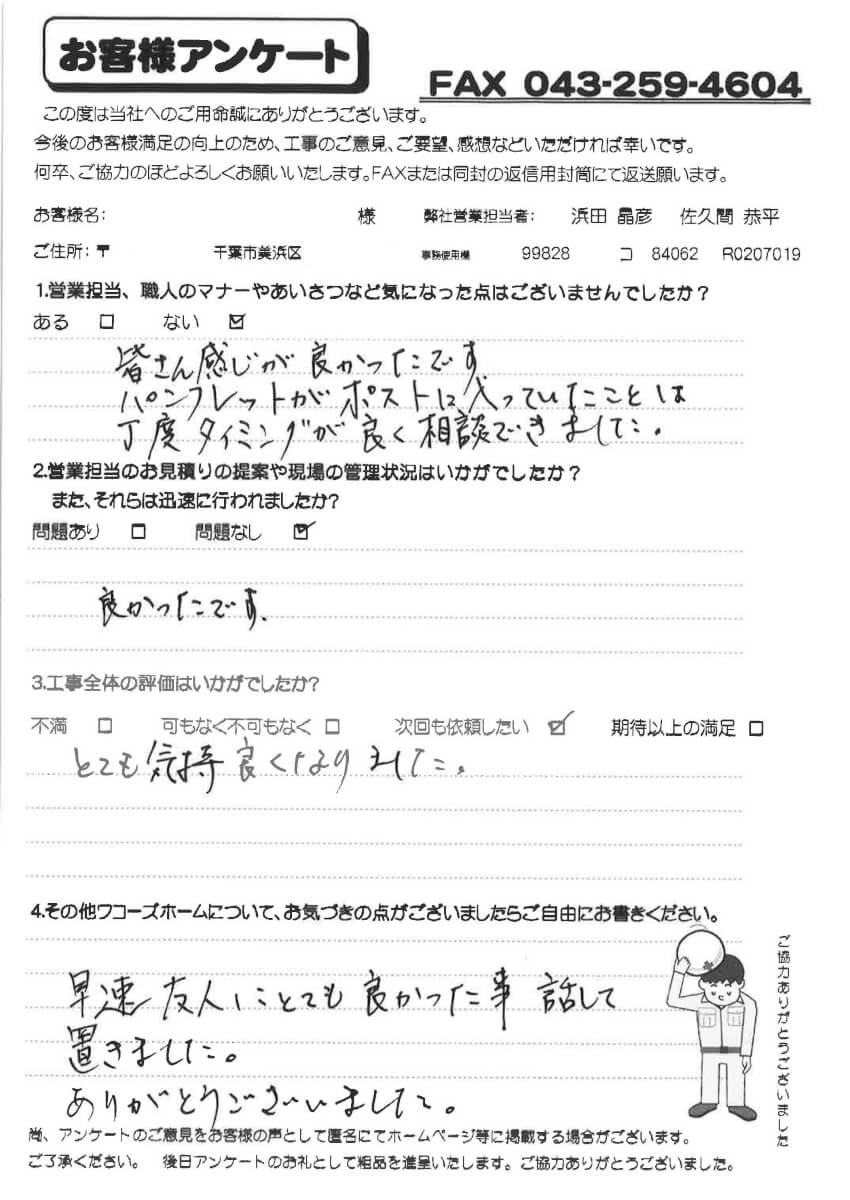 お客様アンケート
FAX 043-259-4604
この度は当社へのご用命誠にありがとうございます。
今後のお客様満足の向上のため、工事のご意見、ご要望、感想などいただければ幸いです。
何卒、ご協力のほどよろしくお願いいたします。FAXまたは同封の返信用封筒にて返送願います。
お客様名: 様 弊社営業担当者: 浜田 晶彦 佐久間 恭平
ご住所:〒 千葉市美浜区 事務使用欄 99828 コ 84062 R0207019
1.営業担当、職人のマナーやあいさつなど気になった点はございませんでしたか?
ある □ ない ☑
皆さん感じが良かったです
パンフレットがポストに入っていたことは
丁度タイミングが良く相談できました。
2.営業担当のお見積りの提案や現場の管理状況はいかがでしたか?
また、それらは迅速に行われましたか?
問題あり □ 問題なし ☑
良かったです.
3.工事全体の評価はいかがでしたか?
不満 □ 可もなく不可もなく □ 次回も依頼したい ☑ 期待以上の満足 □
とても気持良くなりました。
4.その他ワコーズホームについて、お気づきの点がございましたらご自由にお書きください。
早速友人にとても良かった事話して
置きました。
ありがとうございました。
ご協力ありがとうございました
尚、アンケートのご意見をお客様の声として匿名にてホームページ等に掲載する場合がございます。
ご了承ください。 後日アンケートのお礼として粗品を進呈いたします。ご協力ありがとうございました。